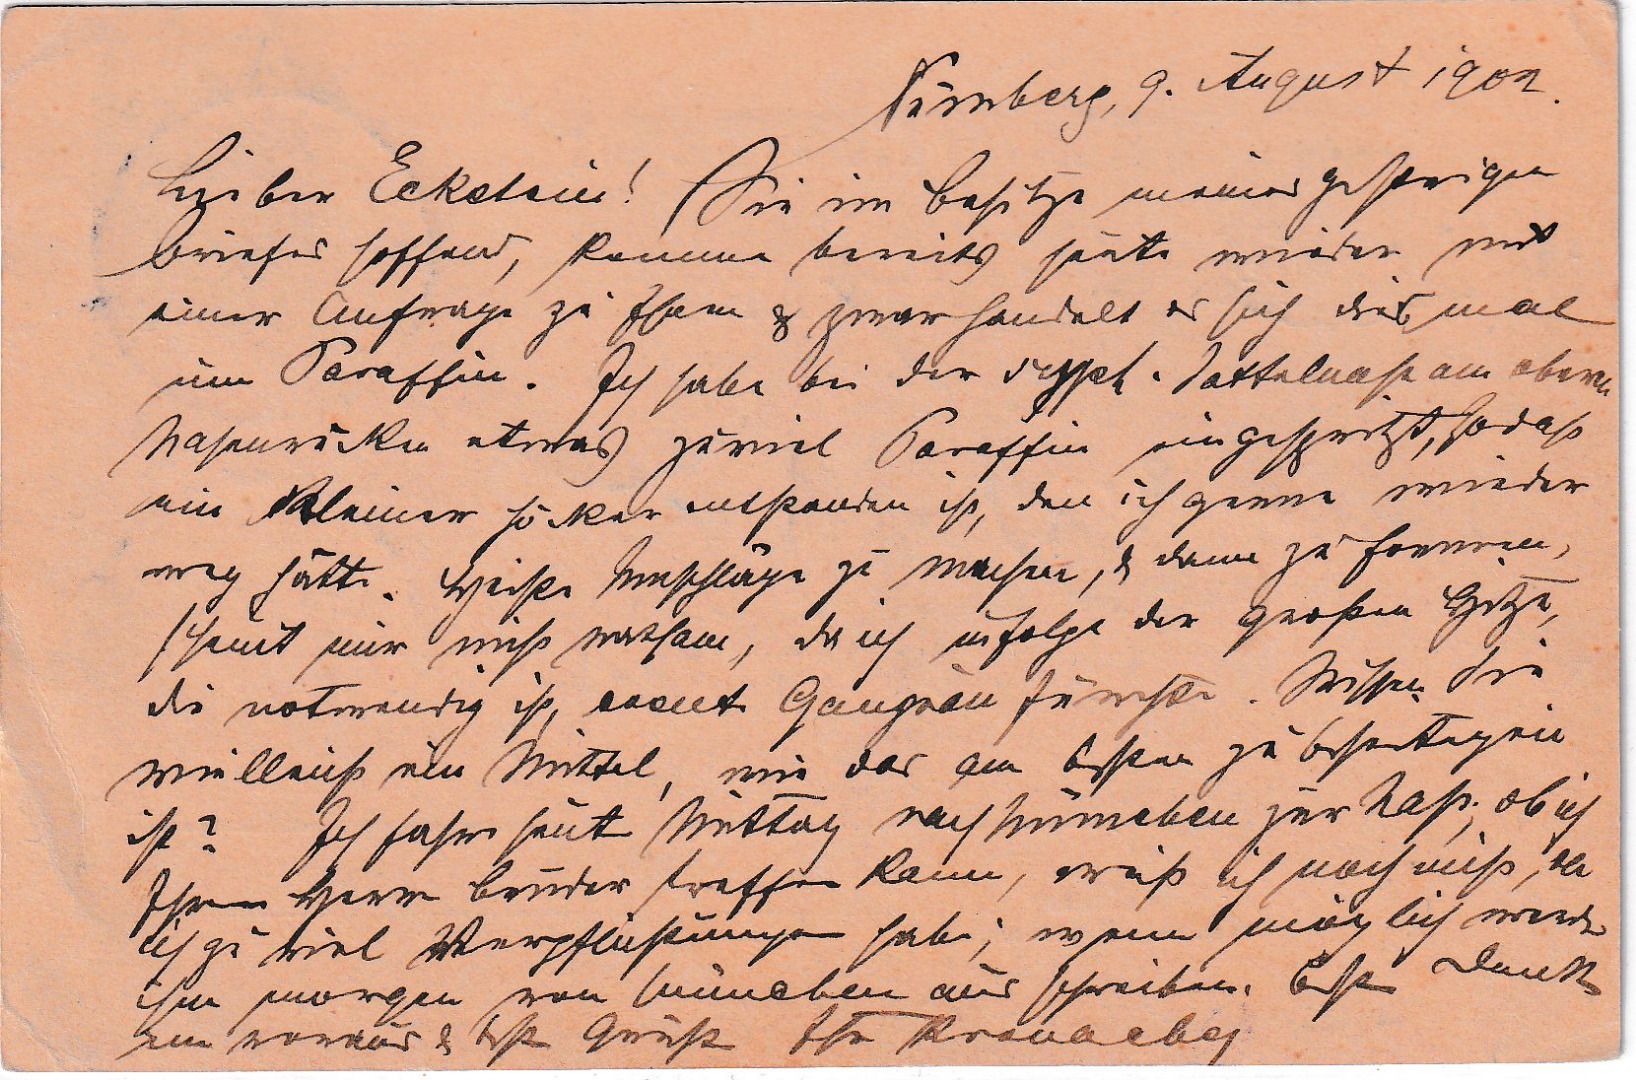 Nürnberg, 9. August 1902.
Lieber Eckstein! Sie im Besitze meines gestrigen
Briefes hoffend, komme bereits heute wieder mit
einer Anfrage zu Ihnen & zwar handelt es sich diesmal
um Paraffin. Ich habe bei der Sattelnase am obern
Nasenrücken etwas zuviel Paraffin eingespritzt, sodaß
ein kleiner Höcker entstanden ist, den ich gerne wieder
weg hätte. Heiße Umschläge zu machen, & dann zu formen,
scheint mir nicht ratsam, da ich infolge der großen Hitze,
die notwendig ist, event. Gangrän fürchte. Wissen Sie
vielleicht ein Mittel, wie das am besten zu beseitigen
ist? Ich fahre heute Mittag nach München zur Nase, ob ich
Ihren Herrn Bruder treffen kann, weiß ich noch nicht, da
ich zu viel Verpflichtungen habe; wenn möglich werde
ihm morgen von München aus schreiben. Besten Dank
im voraus & beste Grüße Ihr Kronacher